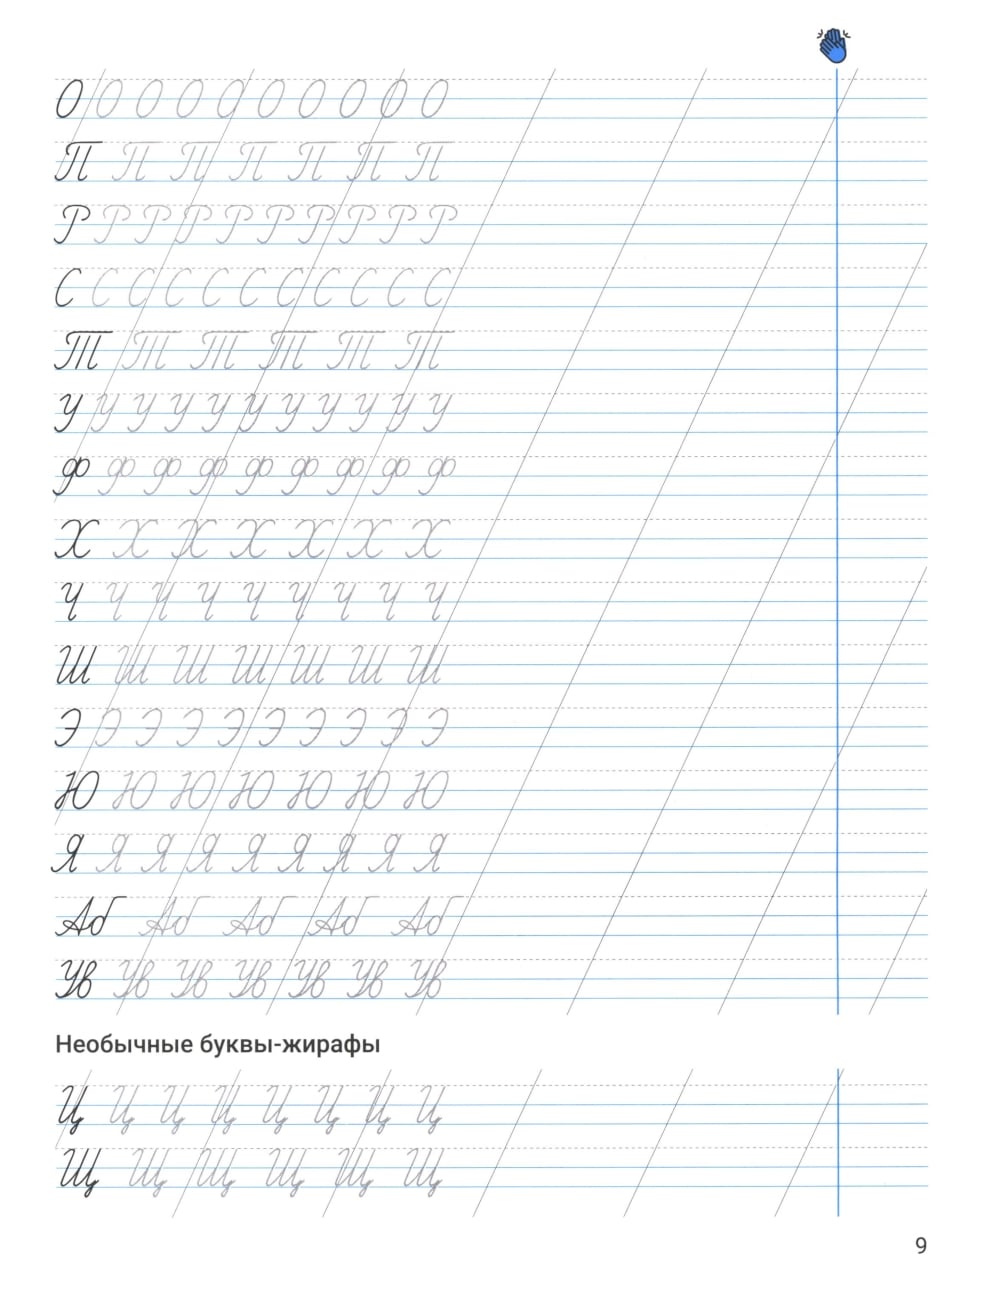 О О О О О О О О О О
П П П П П П П
Р Р Р Р Р Р Р Р Р Р
С С С С С С С С С С С
Т Т Т Т Т Т
У У У У У У У У У У У
Ф Ф Ф Ф Ф Ф Ф Ф Ф
Х Х Х Х Х Х Х
Ч Ч Ч Ч Ч Ч Ч Ч Ч
Ш Ш Ш Ш Ш Ш Ш
Э Э Э Э Э Э Э Э Э Э
Ю Ю Ю Ю Ю Ю Ю
Я Я Я Я Я Я Я Я Я
Аб Аб Аб Аб Аб
Ув Ув Ув Ув Ув Ув Ув
Необычные буквы-жирафы
Ц Ц Ц Ц Ц Ц Ц Ц
Щ Щ Щ Щ Щ Щ
9